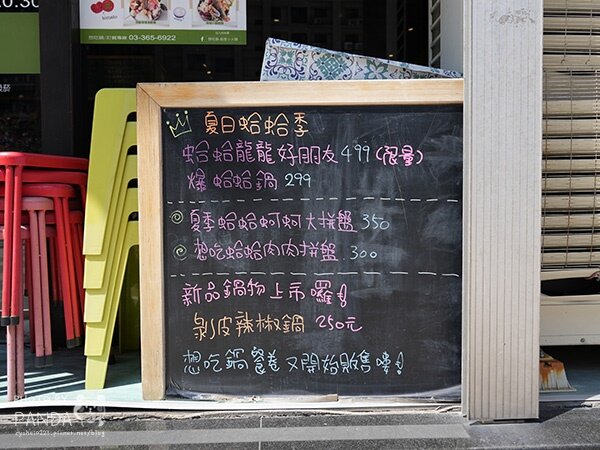 想吃鍋/訂餐專線 03-365-6922
夏日蛤蛤季
蛤蛤龍龍好朋友 499 (限量)
爆蛤蛤鍋 299
夏季蛤蛤蚵蚵大拼盤 350
想吃蛤蛤肉肉拼盤 300
新品鍋物上市囉!
剝皮辣椒鍋 250元
想吃鍋餐卷又開始販售嘍!
PANDA